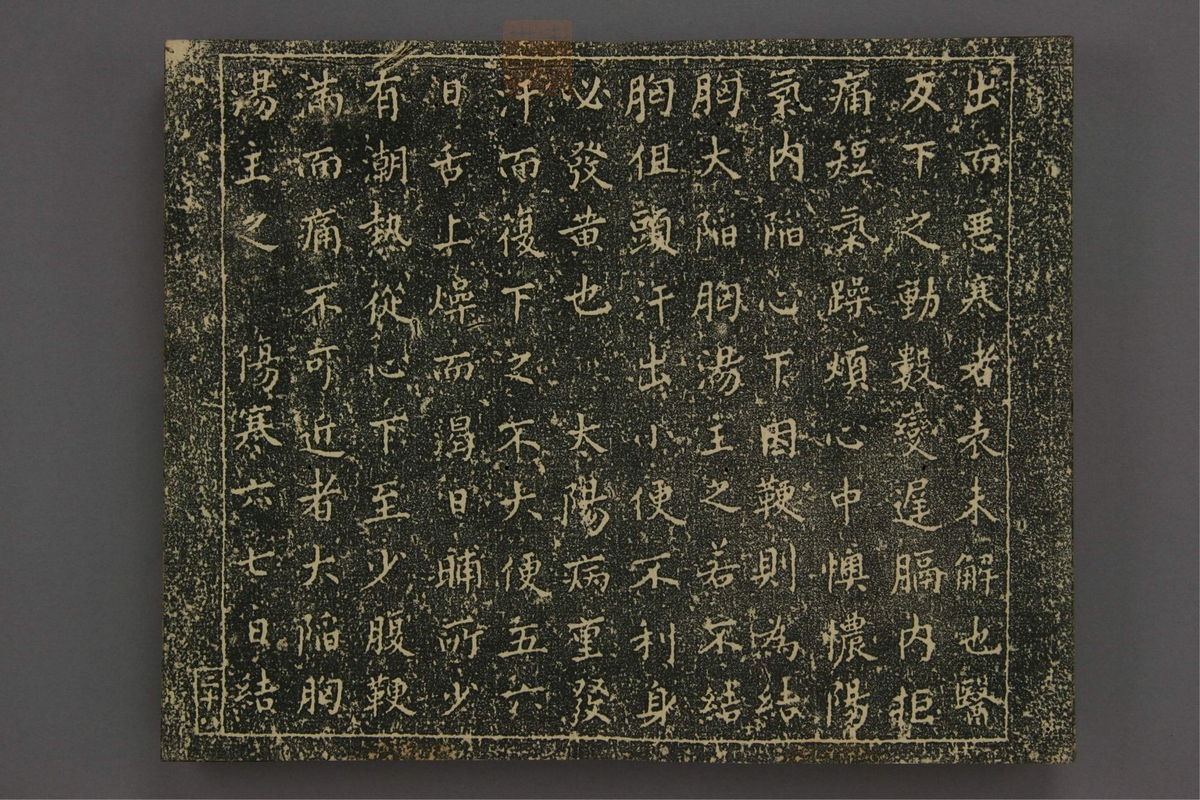 出而悪寒者表未解也醫
反下之動數變遲膈内拒
痛短氣躁煩心中懊憹陽
氣内陷心下因鞕則為結
胸大陷胸湯主之若不結
胸但頭汗出小便不利身
必發黄也　太陽病重發
汗而復下之不大便五六
日舌上燥而渴日晡所少
有潮熱從心下至少腹鞕
滿而痛不可近者大陷胸
湯主之　傷寒六七日結